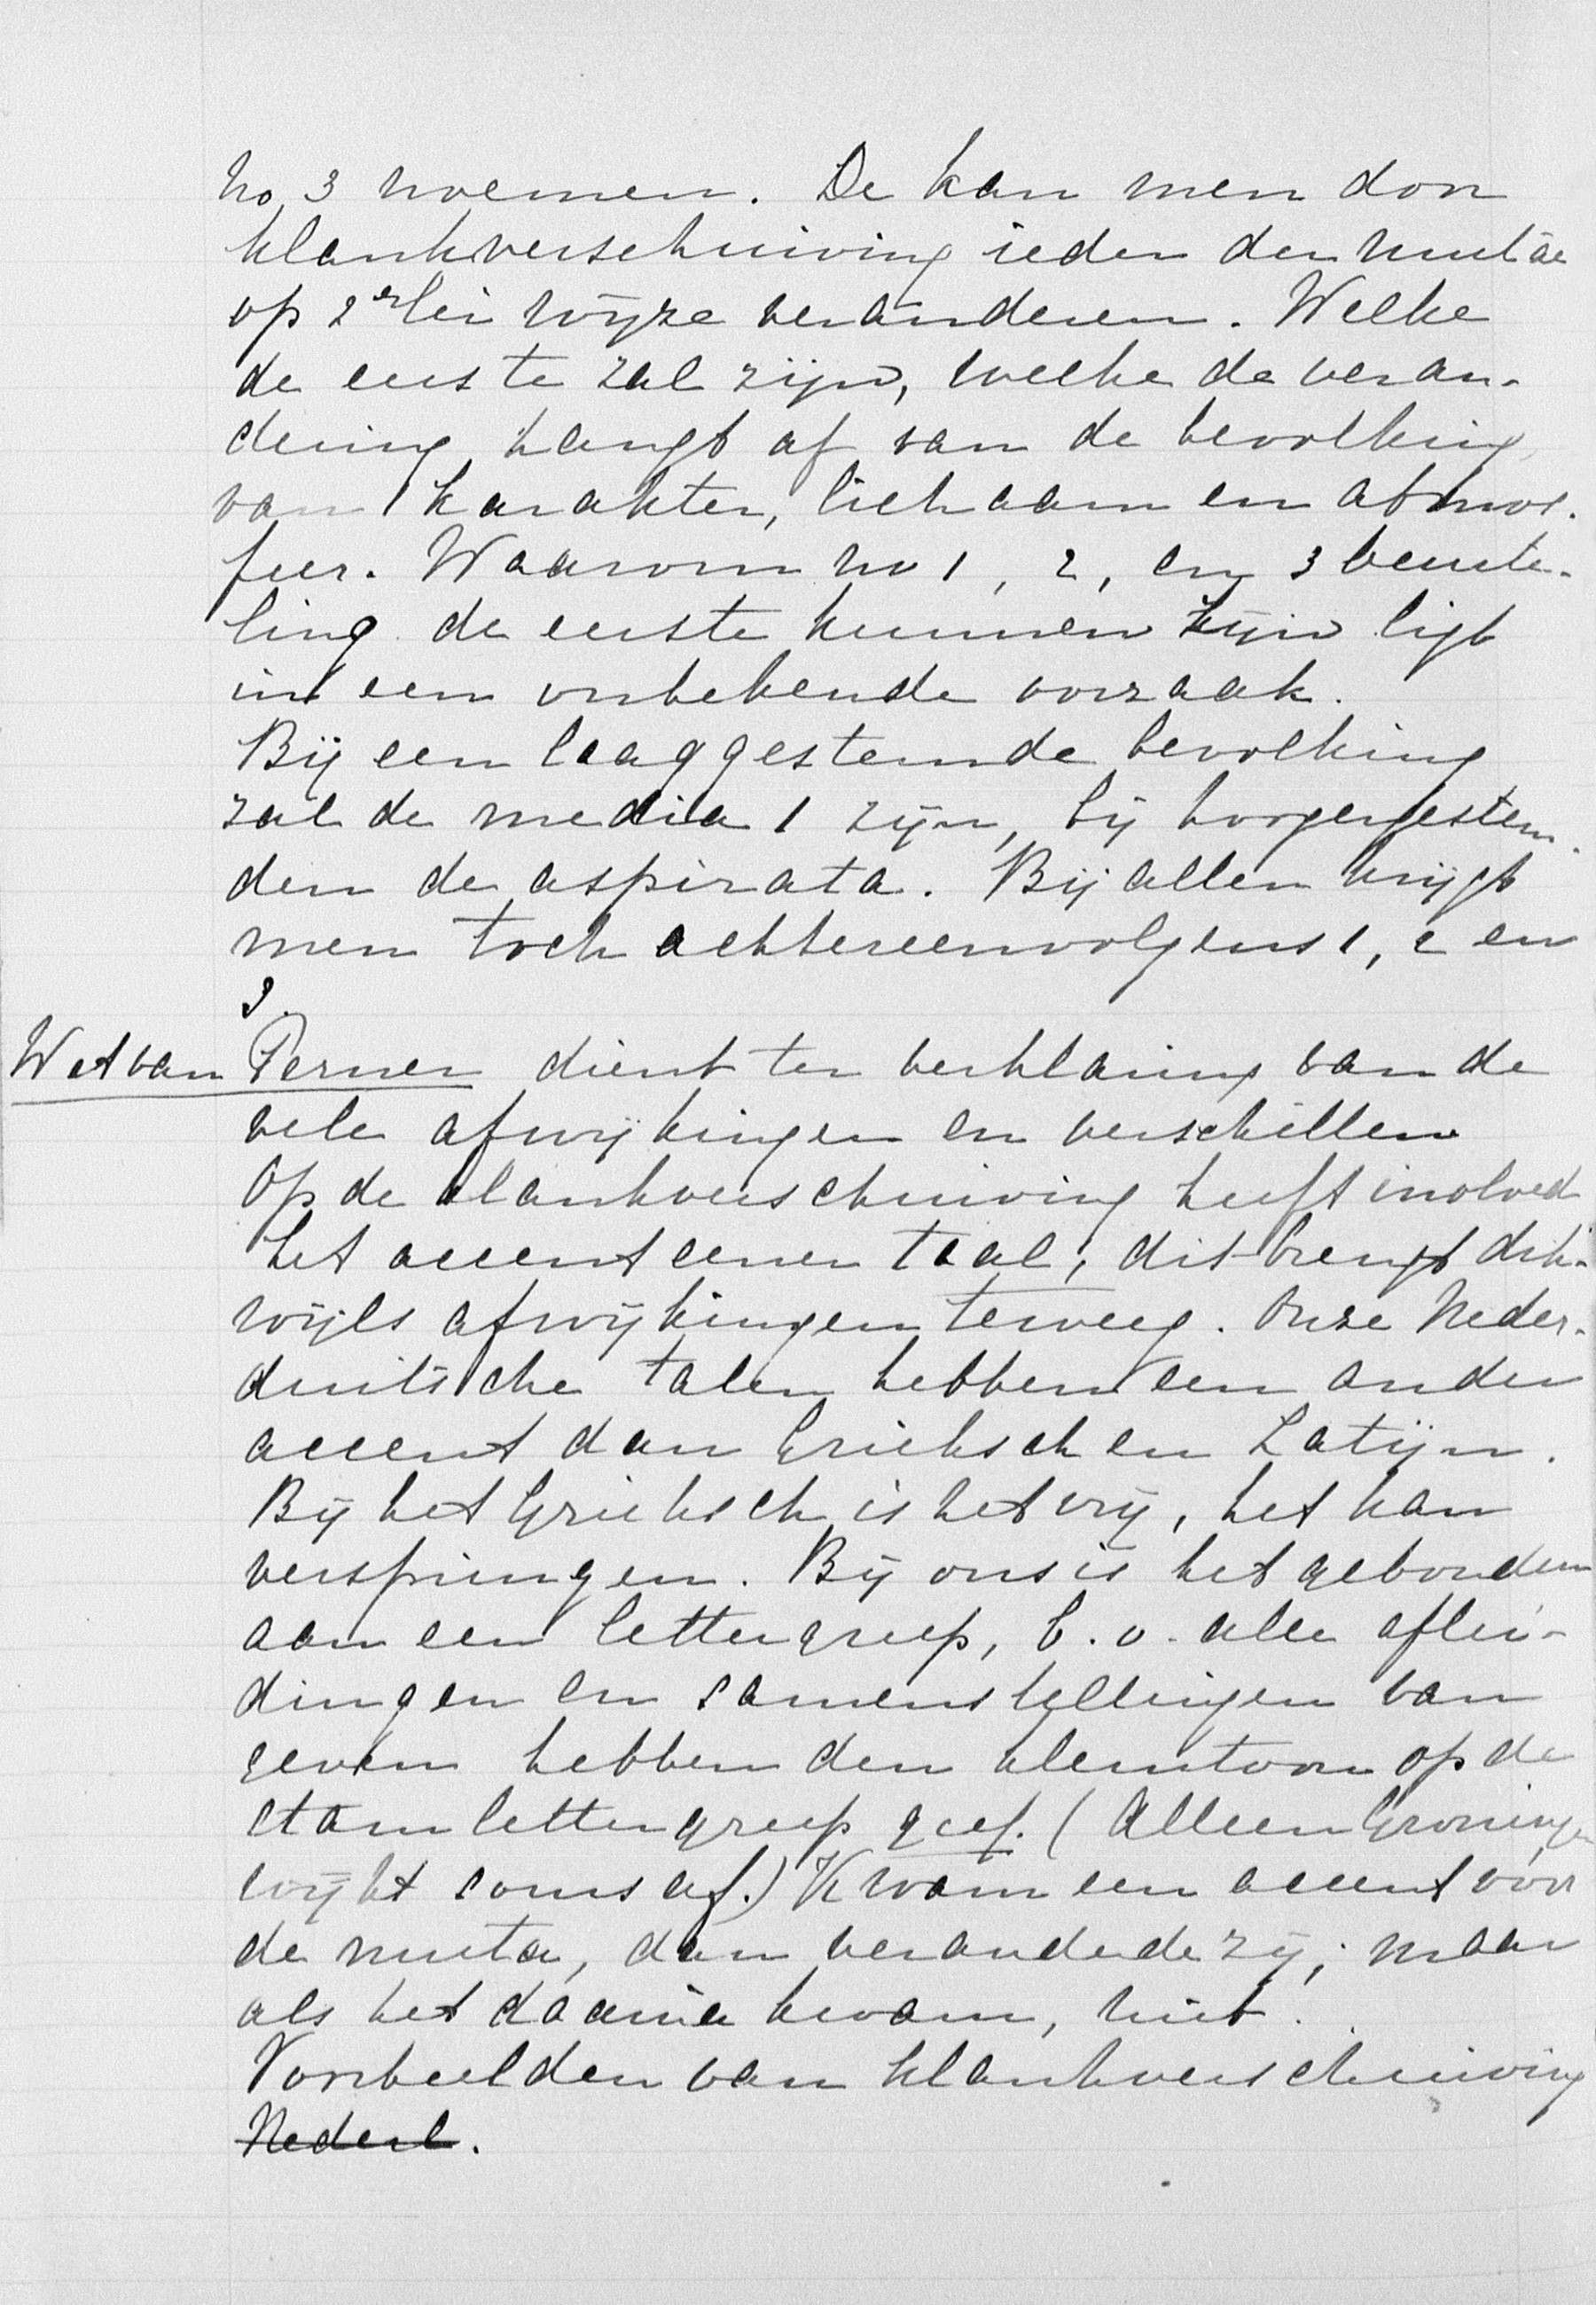 no 3 noemen. De kan men door
klankverschuiving ieder der mutae
op 2erlei wijze veranderen. Welke
de eerste zal zijn, welke de veran-
dering, hangt af van de bevolking,
van karakter, lichaam en atmos-
feer. Waarom no 1, 2, en 3 beurte-
ling de eerste kunnen zijn ligt
in een onbekende oorzaak.
Bij een laaggestemde bevolking
zal de media 1 zijn, bij hoogergestem-
den de aspirata. Bij allen krijgt
men toch achtereenvolgens 1, 2 en
3.
Wet van Verner dient ter verklaring van de
vele afwijkingen en verschillen
Op de klankverschuiving heeft invloed
het accent eener taal, dit brengt dik-
wijls afwijkingen teweeg. Onze Neder-
duitsche talen hebben een ander
accent dan Grieksch en Latijn.
Bij het Grieksch is het vrij, het kan
verspringen. Bij ons is het gebonden
aan een lettergreep, b.v. alle aflei-
dingen en samenstellingen van
geven hebben den klemtoon op de
stamlettergreep geef. (Alleen Groningen
wijkt soms af.) Kwam een accent vóór
de muta, dan veranderde zij; maar
als het daarna kwam, niet.
Voorbeelden van klankverschuiving
Nederl.